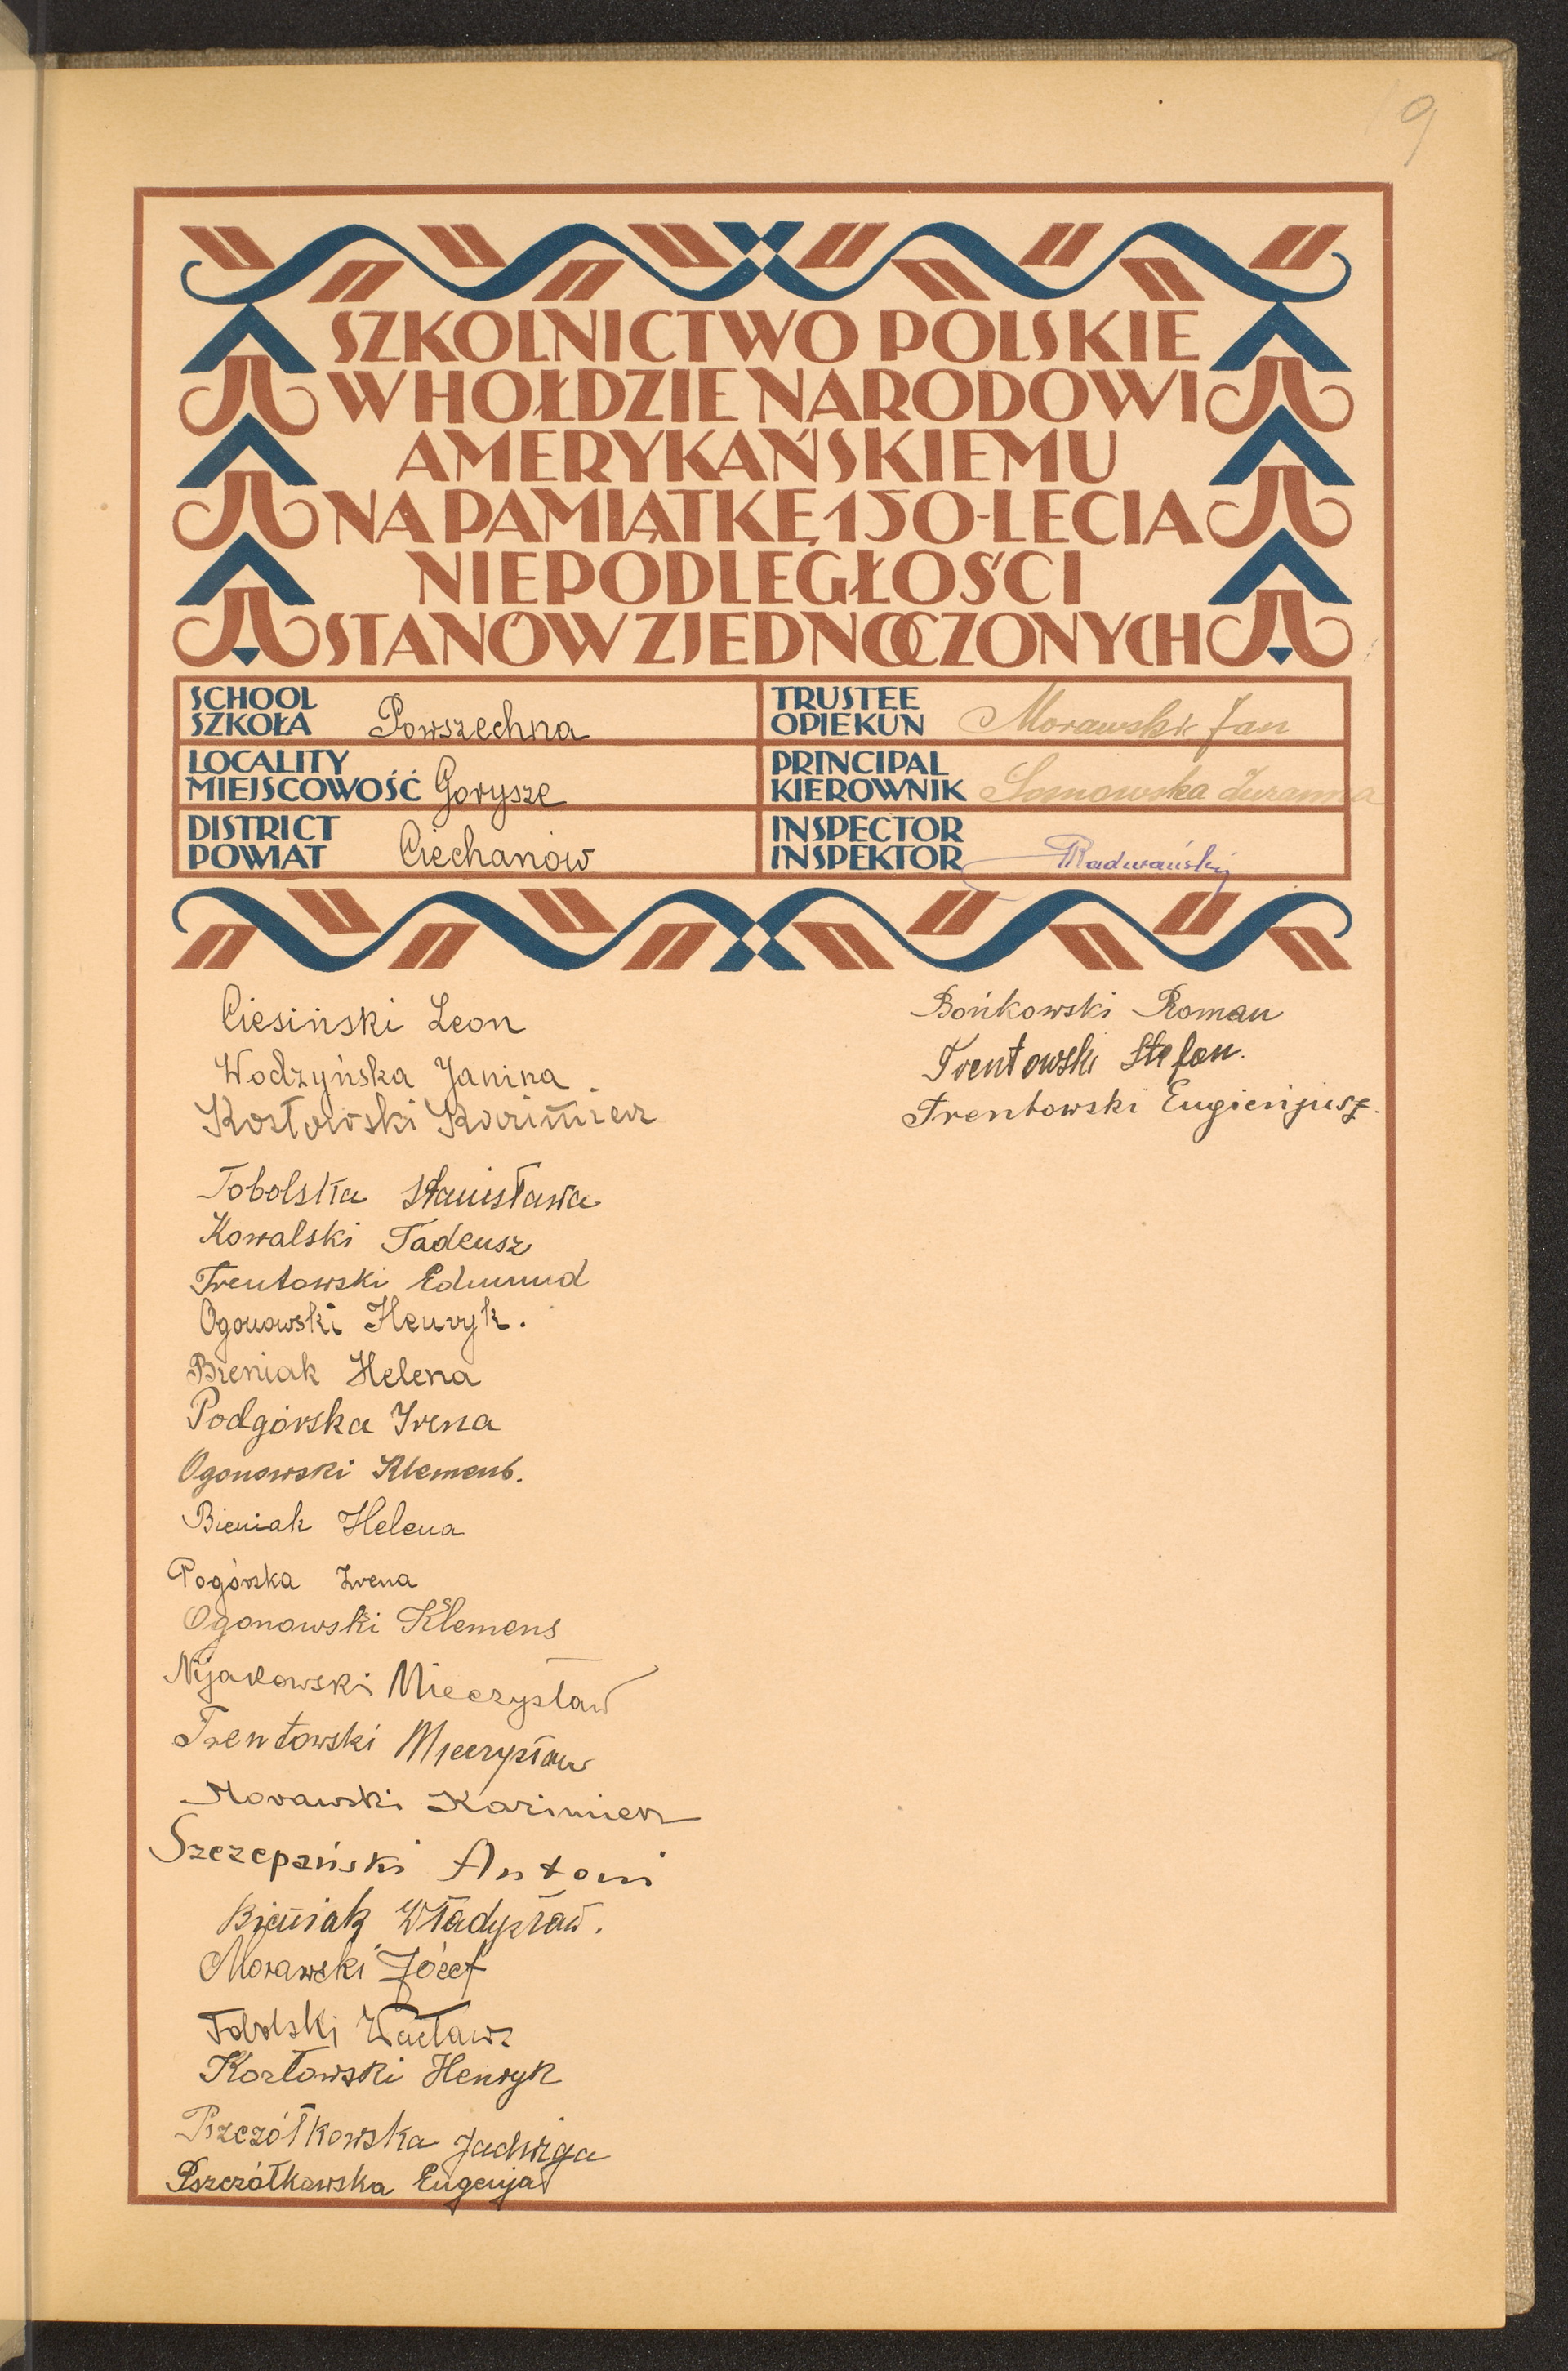 9
SZKOLNICTWO POLSKIE
W HOŁDZIE NARODOWI
AMERYKAŃSKIEMU
NA PAMIĄTKĘ 150-LECIA
NIEPODLEGŁOŚCI
STANÓW ZJEDNOCZONYCH
SCHOOL
SZKOŁA Powszechna
TRUSTEE
OPIEKUN Morawski Jan
LOCALITY
MIEJSCOWOŚĆ Gorysze
PRINCIPAL
KIEROWNIK Sosnowska Zuzanna
DISTRICT
POWIAT Ciechanow
INSPECTOR
INSPEKTOR Radwański
Ciesiński Leon
Wodzyńska Janina
Kozłowski Kazimierz
Tobolska Stanisława
Kowalski Tadeusz
Trentowski Edmund
Ogonowski Henryk.
Bieniak Helena
Podgórska Irena
Ogonowski Klemens.
Bieniak Helena
Pogórska Irena
Ogonowski Klemens
Nijakowski Mieczysław
Trentowski Mieczysław
Morawski Kazimierz
Szczepański Antoni
Bieniak Władysław.
Morawski Józef
Tobolski Wacław
Kozłowski Henryk
Pszczółkowska Jadwiga
Pszczółkowska Eugenja
Bońkowski Roman
Trentowski Stefan.
Trentowski Eugienjusz.